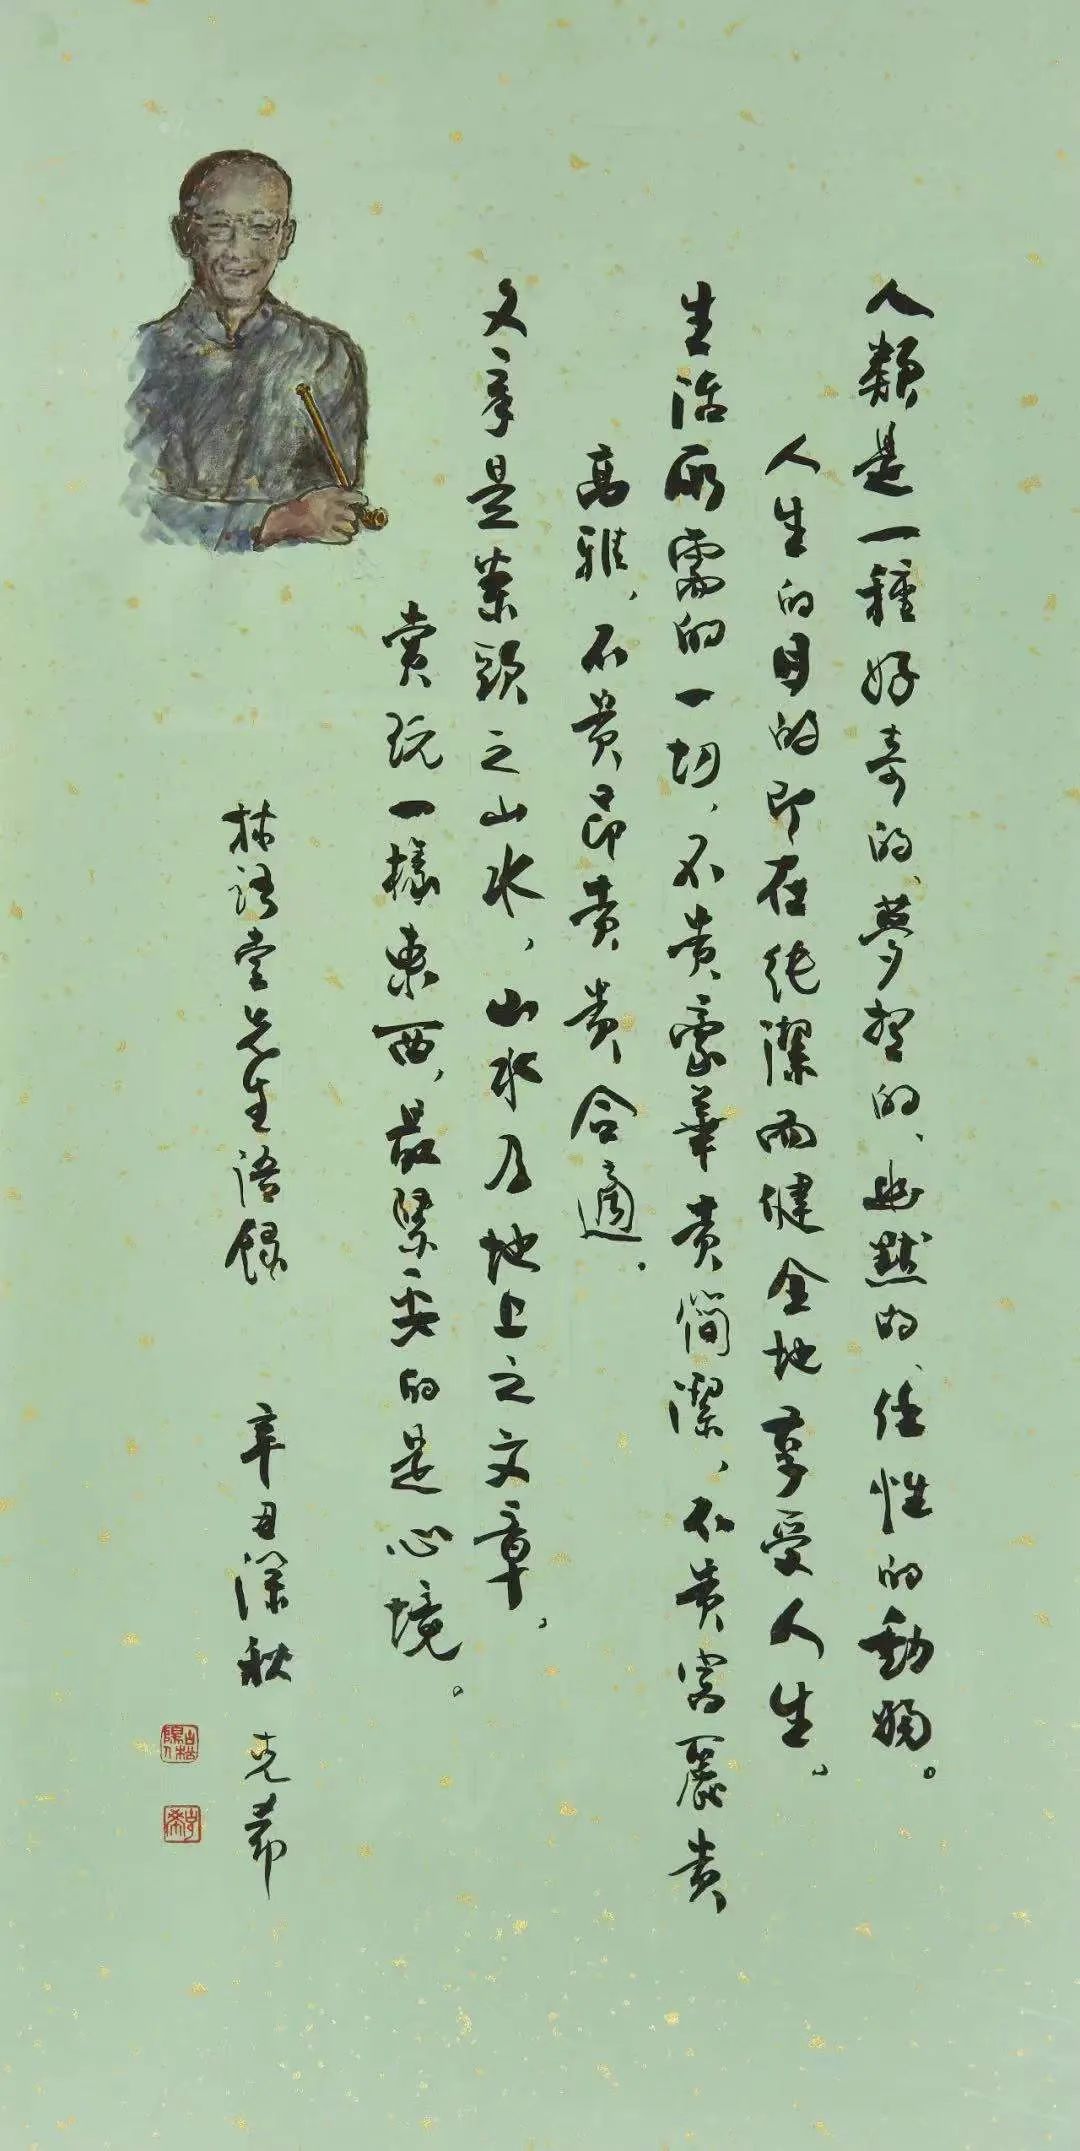 人類是一種好奇的、夢想的、幽默的、任性的動物。
人生的目的即在純潔而健全地享受人生。
生活所需的一切，不貴豪華貴簡潔，不貴富麗貴
高雅，不貴昂貴貴合適。
文章是案頭之山水，山水乃地上之文章，
賞玩一樣東西，最緊要的是心境。
林語堂先生語錄 辛丑深秋 克希